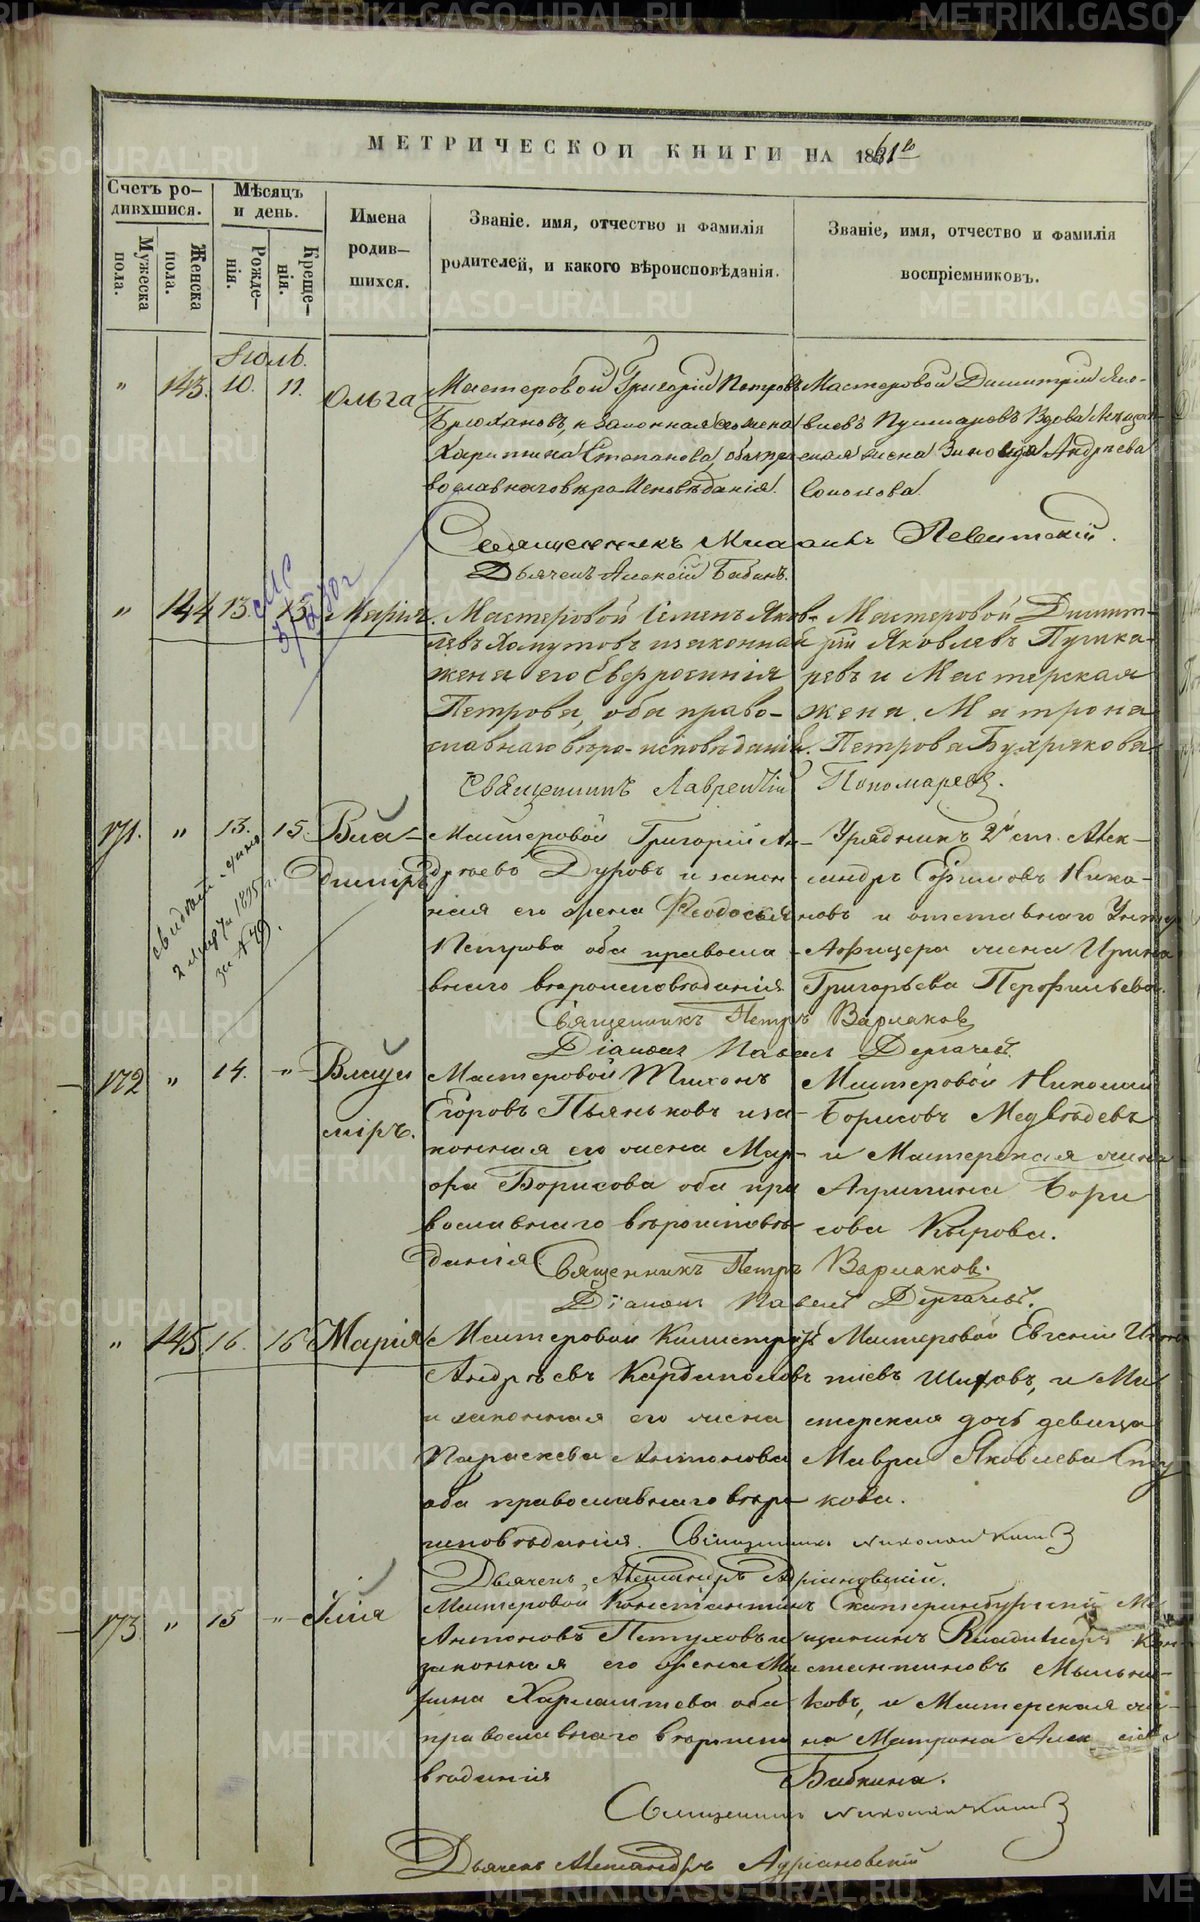 МЕТРИЧЕСКОЙ КНИГИ НА 1861го
Счетъ ро-
дившихся.
Мѣсяцъ
и день.
Мужеска
пола.
Женска
пола.
Рожде-
нія.
Креще-
нія.
Имена
родив-
шихся.
Званіе, имя, отчество и фамилія
родителей, и какого вѣроисповѣданія.
Званіе, имя, отчество и фамилія
воспріемниковъ.
Іюль.
" 143. 10. 11. Ольга
Мастеровой Григорій Петровъ
Брюхановъ, и законная его жена
Харитина Степанова, оба пра
вославнаго вѣроисповѣданія.
Мастеровой Димитрій Яко-
влевъ Пушкаревъ Вдова
жена Зиновія Андреева
Священникъ Левитскій.
Дьячекъ Алексій Бабинъ.
" 144 13. 15 Марія
Мастеровой Семенъ Яков-
левъ Хомутовъ и законная
жена его Евфросинія
Петрова, оба право-
славнаго вѣро-исповѣданія.
Мастеровой Димит-
рій Яковлевъ Пушка-
ревъ и Мастерская
жена Матрона
Петрова Бухрякова
Священникъ Лаврентій Пономаревъ.
171. " 13. 15. Вла-
димиръ
Мастеровой Григорій Ан-
дреевъ Дуровъ и закон-
ная его жена Феодосья
Петрова оба правосла-
внаго вѣроисповѣданія
Урядникъ 2й ст. Алек-
сандръ Ефимовъ Ника-
новъ и отставнаго Унтеръ
Афицера жена Ирина
Григорьева Перфильева.
Священникъ Петръ Варлаков
Діаконъ Павелъ Дергачевъ.
за №49.
172 " 14. -"- Влади
міръ.
Мастеровой Тихонъ
Егоровъ Пьяньковъ и за-
конная его жена Мар-
фа Борисова оба пра
вославнаго вѣроисповѣ-
данія
Мастеровой Николай
Борисовъ Медвѣдевъ
и Мастерская жена
Агрипина Бори
сова Кырова.
Священникъ Петръ Варлаков.
Діаконъ Павелъ Дергачевъ.
" 145 16. 16 Марія
Мастеровой Калистратъ
Андреевъ Кардаполовъ
и законная его жена
Параскева Антонова
оба православнаго вѣро-
исповѣданія.
Мастеровой Евгеній Игна
тіевъ Шиховъ, и Ма
стерская дочь девица
Мавра Яковлева Сту
кова.
Священникъ Николай
Дьячекъ Александръ Адріановскій.
173 " 15 -"- Илія
Мастеровой Константинъ
Антоновъ Петуховъ и
законная его жена Ма
Харлампіева оба
православнаго вѣроиспо
вѣданія
Екатеринбургскій Мѣ
щанинъ Владиміръ Кон
стантиновъ Мыльни-
ковъ, и Мастерская же-
на Матрона Алексіева
Бабкина.
Священникъ Николай
Дьячекъ Александръ Адріановскій
METRIKI.GASO-URAL.RU